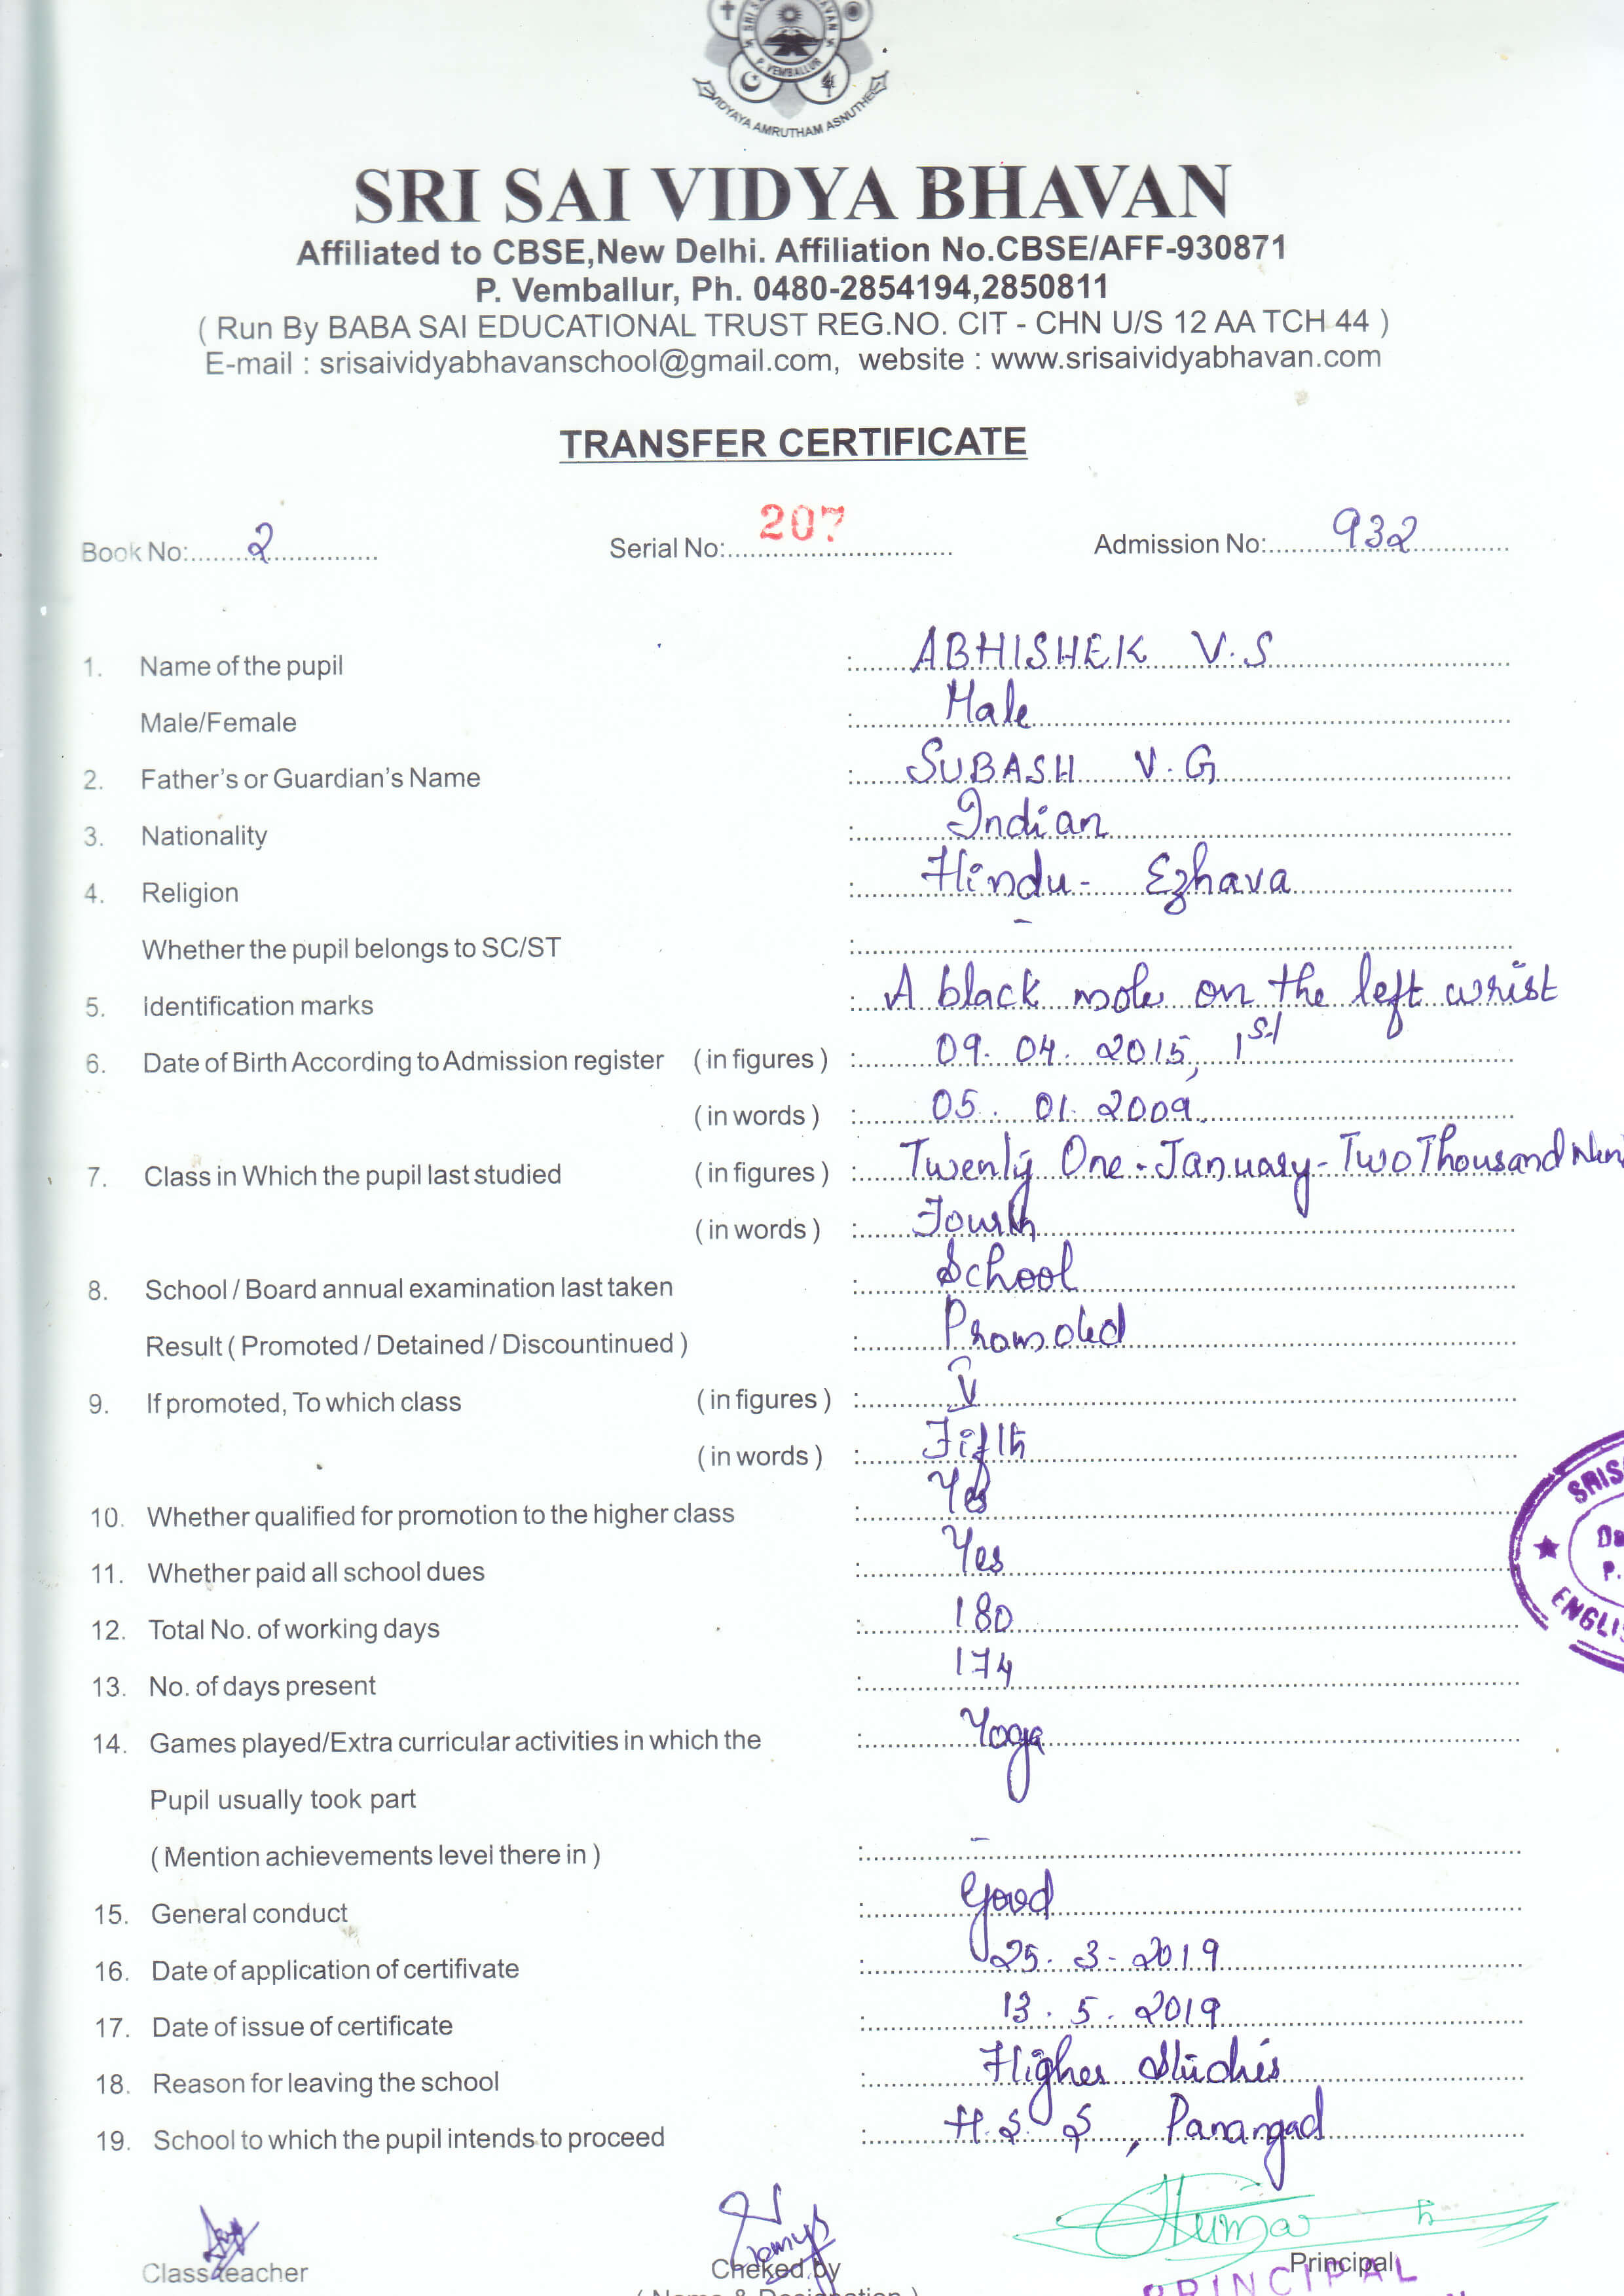 SRI S VAN
P. VEMBALLUR
VIDYAYA AMRUTHAM ASNUTHE
SRI SAI VIDYA BHAVAN
Affiliated to CBSE,New Delhi. Affiliation No.CBSE/AFF-930871
P. Vemballur, Ph. 0480-2854194,2850811
( Run By BABA SAI EDUCATIONAL TRUST REG.NO. CIT - CHN U/S 12 AA TCH 44 )
E-mail : srisaividyabhavanschool@gmail.com, website : www.srisaividyabhavan.com
TRANSFER CERTIFICATE
Book No:. 2 Serial No:. 207 Admission No:. 932
1. Name of the pupil : ABHISHEK V.S
Male/Female : Male
2. Father's or Guardian's Name : SUBASH V.G
3. Nationality : Indian
4. Religion : Hindu - Ezhava
Whether the pupil belongs to SC/ST : -
5. Identification marks : A black mole on the left wrist
6. Date of Birth According to Admission register ( in figures ) : 09. 04. 2015, 1st
( in words ) : 05. 01. 2009.
7. Class in Which the pupil last studied ( in figures ) : Twenty One - January - Two Thousand Nin
( in words ) : Fourth
8. School / Board annual examination last taken : School
Result ( Promoted / Detained / Discountinued ) : Promoted
9. If promoted, To which class ( in figures ) : V
( in words ) : Fifth
10. Whether qualified for promotion to the higher class : Yes
11. Whether paid all school dues : Yes
12. Total No. of working days : 180
13. No. of days present : 174
14. Games played/Extra curricular activities in which the : Yoga
Pupil usually took part
( Mention achievements level there in ) : -
15. General conduct : Good
16. Date of application of certifivate : 25. 3 - 2019
17. Date of issue of certificate : 13. 5. 2019
18. Reason for leaving the school : Higher Studies
19. School to which the pupil intends to proceed : H.S.S, Panangad
SRIS
P.
ENGLIS
Class teacher Cheked by Principal
( Name & Designation ) PRINCIPAL